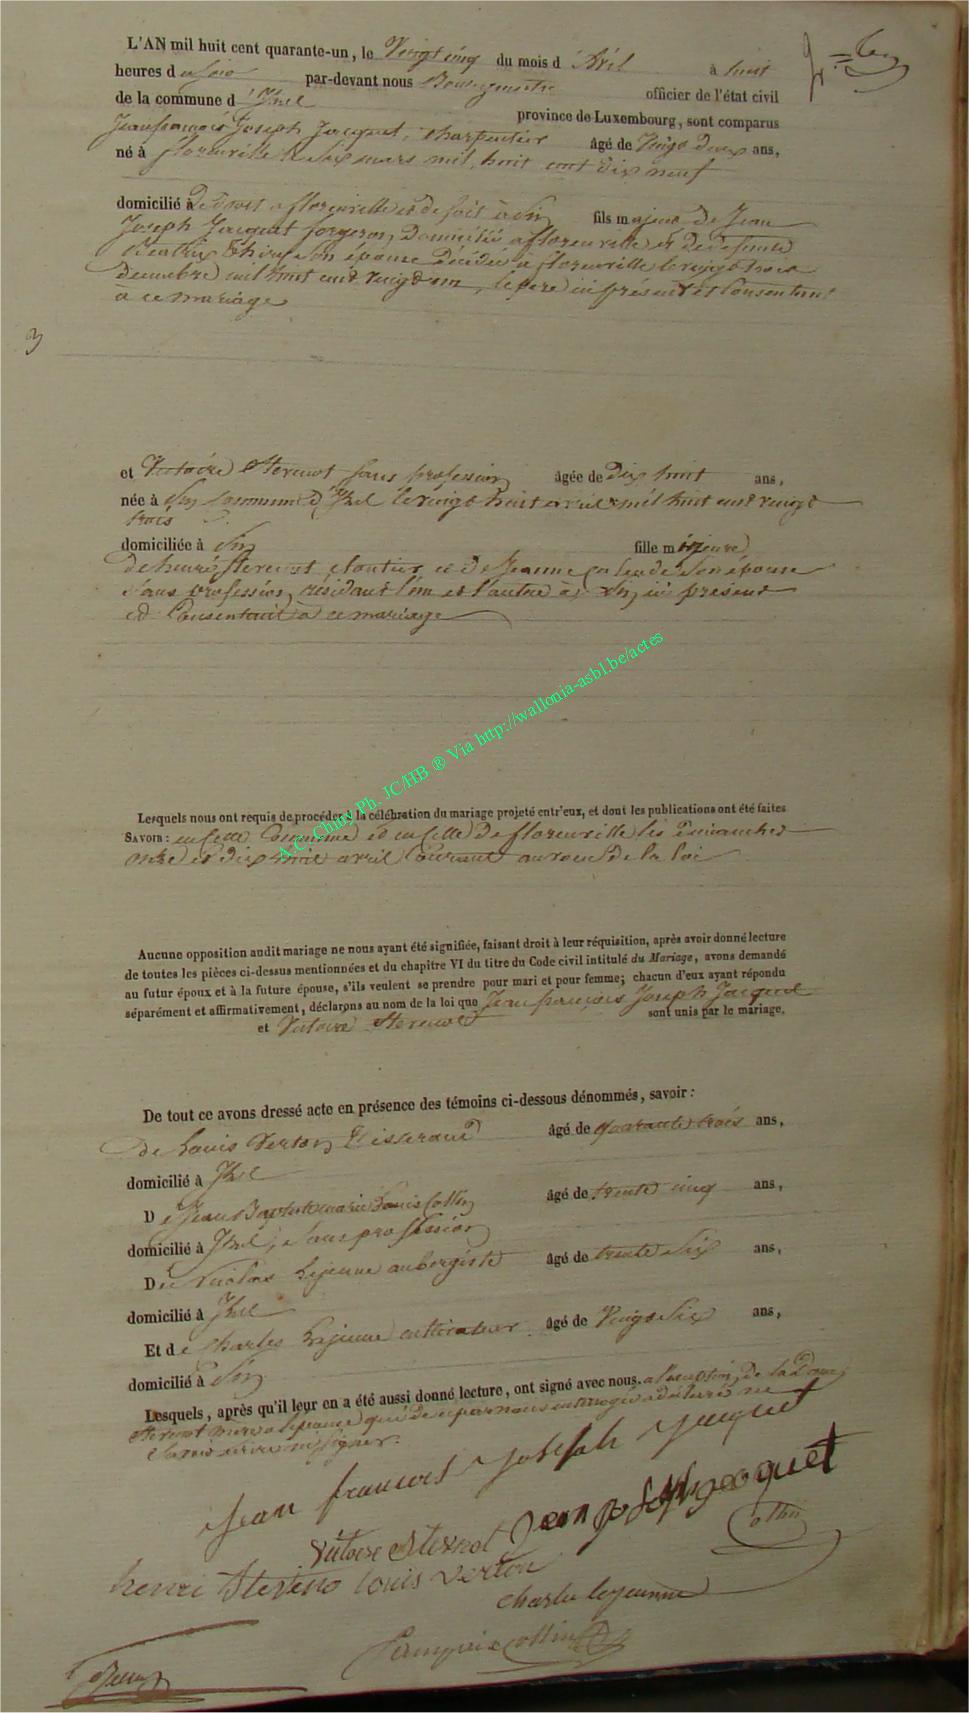 L'AN mil huit cent quarante-un, le Vingt cinq du mois d'Avril à huit
heures du soir par-devant nous Bourgmestre officier de l'état civil
de la commune d'Izel province de Luxembourg, sont comparus
Jean françois Joseph Jacquet, charpentier âgé de Vingt deux ans,
né à florenville le six mars mil huit cent dix neuf
domicilié à De droit a florenville et de fait à Pin fils majeur de Jean
Joseph Jacquet forgeron, domicilié a florenville et de defunte
son épouse décédée à florenville le vingt trois
decembre mil huit cent vingt, le pere ici présent et consentant
à ce mariage
3
et Victoire Sternot sans profession âgée de dix huit ans,
née à Pin commune d'Izel le vingt huit avril mil huit cent vingt
trois
domiciliée à Pin fille mineure
de henri Sternot cloutier et de Jeanne son épouse
sans profession, résidant l'un et l'autre à Pin, ici présent
et consentant à ce mariage
A.C. Chiny Ph. JC/HB ® Via http://wallonia-asbl.be/actes
Lesquels nous ont requis de procéder à la célébration du mariage projeté entr'eux, et dont les publications ont été faites
SAVOIR : en cette commune et en celle de florenville les dimanches
onze et dix huit avril courant au voeu de la loi
Aucune opposition audit mariage ne nous ayant été signifiée, faisant droit à leur réquisition, après avoir donné lecture
de toutes les pièces ci-dessus mentionnées et du chapitre VI du titre du Code civil intitulé du Mariage, avons demandé
au futur époux et à la future épouse, s'ils veulent se prendre pour mari et pour femme; chacun d'eux ayant répondu
séparément et affirmativement, déclarons au nom de la loi que Jean françois Joseph Jacquet
et Victoire Sternot sont unis par le mariage.
De tout ce avons dressé acte en présence des témoins ci-dessous dénommés, savoir :
De Louis Verton, Tisserand âgé de quarante trois ans,
domicilié à Izel
De Jean Baptiste marie Louis Collin âgé de trente cinq ans,
domicilié à Izel, sans profession
De Nicolas Lejeune aubergiste âgé de trente six ans,
domicilié à Izel
Et de Charles Lejeune cultivateur âgé de Vingt six ans,
domicilié à Pin
Lesquels, après qu'il leur en a été aussi donné lecture, ont signé avec nous. a l'exception de la Dame
Sternot mere a l'epouse qui de ce par nous interrogée a déclaré ne
savoir écrire ni signer.
Jean francois Joseph Jacquet
Victoire Sternot Jean joseph jacquet
Collin
henri Sterno louis verton
charles lejeunne
Collin